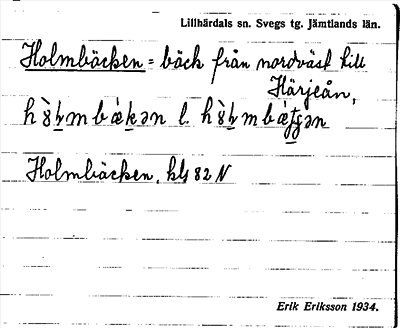 Lillhärdals sn. Svegs tg. Jämtlands län.
Holmbäcken = bäck från nordväst till
Härjeån,
l.
Holmbäcken, 82 N
Erik Eriksson 1934.